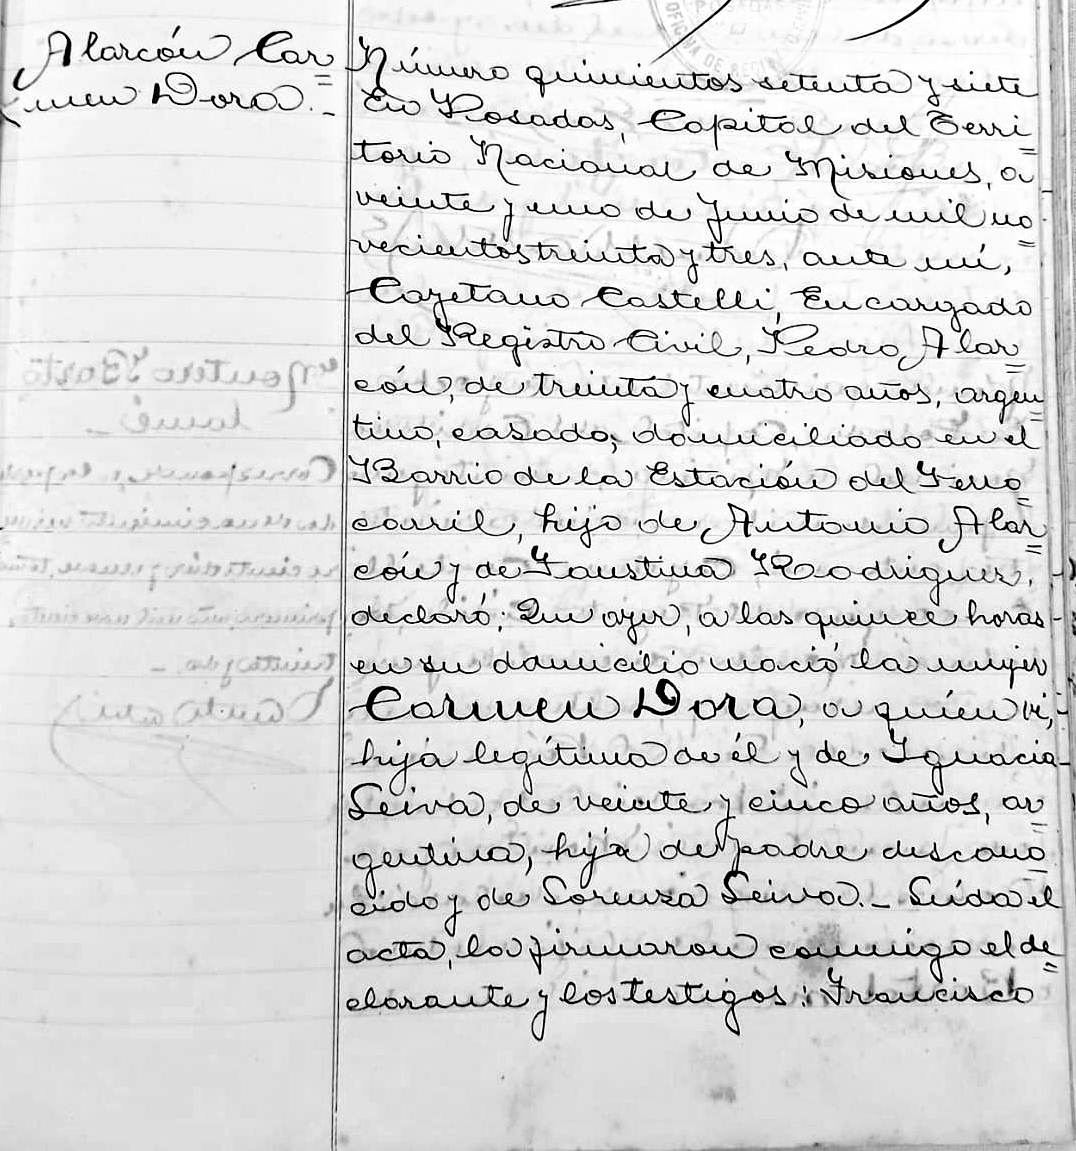 Alarcón Car=
men Dora.-
Número quinientos setenta y siete
En Posadas, Capital del Terri=
torio Nacional de Misiones, a
veinte y uno de Junio de mil no=
vecientos treinta y tres, ante mí,
Cayetano Castelli, Encargado
del Registro Civil, Pedro Alar=
cón, de treinta y cuatro años, argen=
tino, casado, domiciliado en el
Barrio de la Estación del Ferro=
carril, hijo de Antonio Alar=
cón y de Faustina Rodriguez,
declaró: Que ayer, a las quince horas
en su domicilio nació la mujer
Carmen Dora, a quién vi,
hija legítima de él y de Ignacia
Leiva, de veinte y cinco años, ar=
gentina, hija de padre descono=
cido y de Lorenza Leiva.- Leída el
acta, la firmaron conmigo el de=
clarante y los testigos: Francisco